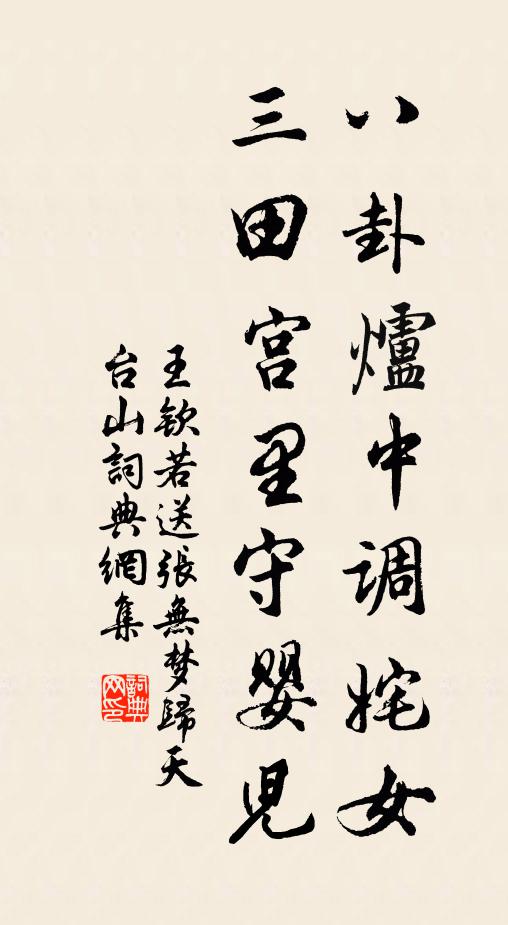 八卦爐中調姹女
三田宫里守嬰児
王欽若送張無梦歸天
台山詞典網集
詞典
网印